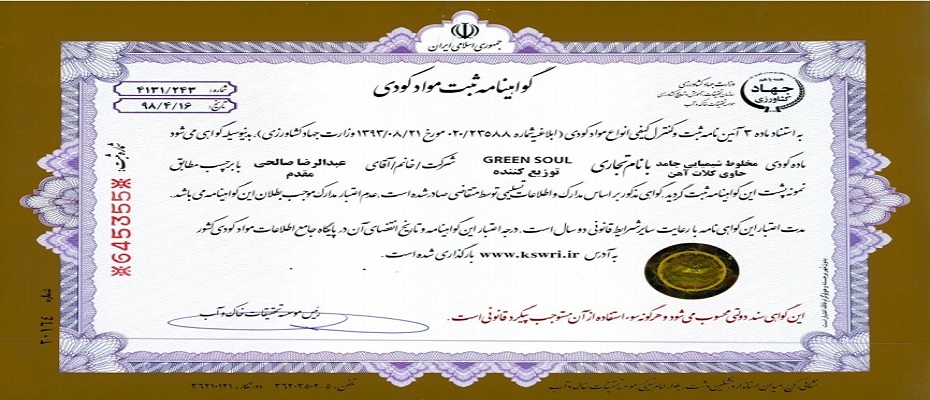 جمهوری اسلامی ایران
گواهینامه ثبت مواد کودی
وزارت جهاد کشاورزی
سازمان تحقیقات، آموزش و ترویج کشاورزی
موسسه تحقیقات خاک و آب
همه با هم
جهاد
کشاورزی
شماره: ۴۱۳۱/۲۴۳
تاریخ: ۹۸/۴/۱۶
به استناد ماده ۳ آئین نامه ثبت و کنترل کیفی انواع مواد کودی (ابلاغیه شماره ۰۲۰/۲۳۵۸۸ مورخ ۱۳۹۳/۰۸/۲۱ وزارت جهاد کشاورزی)، بدینوسیله گواهی می شود
ماده کودی مخلوط شیمیایی جامد حاوی کلات آهن با نام تجاری GREEN SOUL توزیع کننده شرکت/خانم/آقای عبدالرضا صالحی مقدم با برچسب مطابق
نمونه پشت این گواهینامه ثبت گردید. گواهی مذکور بر اساس مدارک و اطلاعات تسلیمی توسط متقاضی صادر شده است. عدم اعتبار مدارک موجب بطلان این گواهینامه می باشد.
مدت اعتبار این گواهی نامه با رعایت سایر شرایط قانونی دو سال است. درجه اعتبار این گواهینامه و تاریخ انقضای آن در پایگاه جامع اطلاعات مواد کودی کشور
به آدرس www.kswri.ir بارگذاری شده است.
رئیس موسسه تحقیقات خاک و آب
این گواهی سند دولتی محسوب می شود و هرگونه سوء استفاده از آن مستوجب پیگرد قانونی است.
شماره ثبت:
※645355※
شماره ۲۰۱۶۴
موسسه تحقیقات خاک و آب
تلفن: ۵-۳۶۲۰۳۵۰۲ دورنگار: ۳۶۲۱۰۱۲۱